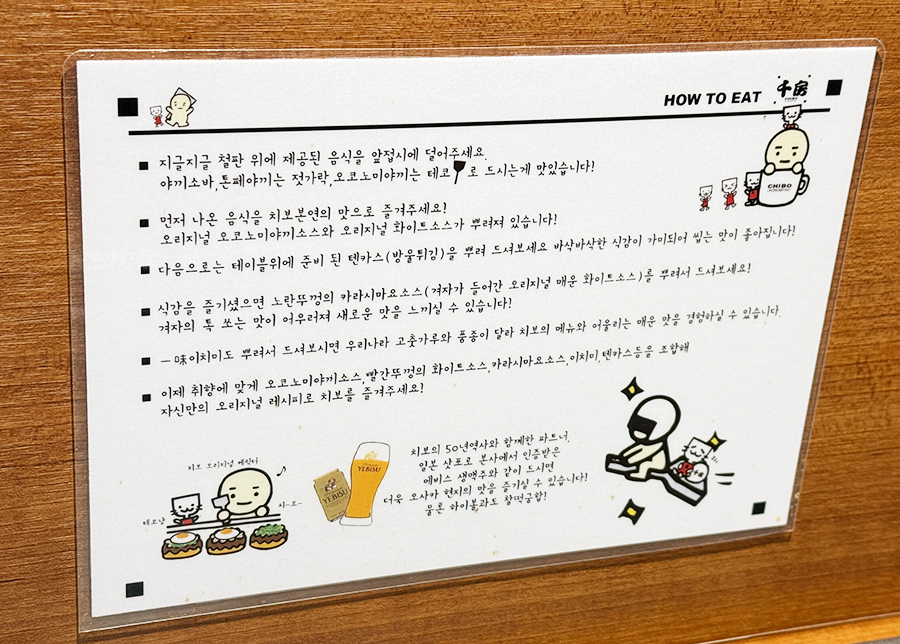 HOW TO EAT 千房
CHIBO
지글지글 철판 위에 제공된 음식을 앞접시에 덜어주세요.
야끼소바,톤페야끼는 젓가락,오코노미야끼는 테코로 드시는게 맛있습니다!
먼저 나온 음식을 치보본연의 맛으로 즐겨주세요!
오리지널 오코노미야끼소스와 오리지널 화이트소스가 뿌려져 있습니다!
다음으로는 테이블위에 준비 된 텐카스(방울튀김)을 뿌려 드셔보세요 바삭바삭한 식감이 가미되어 씹는 맛이 좋아집니다!
식감을 즐기셨으면 노란뚜껑의 카라시마요소스(겨자가 들어간 오리지널 매운 화이트소스)를 뿌려서 드셔보세요!
겨자의 톡 쏘는 맛이 어우러져 새로운 맛을 느끼실 수 있습니다!
一味이치미도 뿌려서 드셔보시면 우리나라 고춧가루와 풍종이 달라 치보의 메뉴와 어울리는 매운 맛을 경험하실 수 있습니다.
이제 취향에 맞게 오코노미야끼소스,빨간뚜껑의 화이트소스,카라시마요소스,이치미,텐카스등을 조합해
자신만의 오리지널 레시피로 치보를 즐겨주세요!
치보 오리지널 캐릭터
테코냥
치-보-
YEBISU
YEBISU
치보의 50년역사와 함께한 파트너,
일본 삿포로 본사에서 인증받은
에비스 생맥주와 같이 드시면
더욱 오사카 현지의 맛을 즐기실 수 있습니다!
물론 하이볼과도 찰떡궁합!